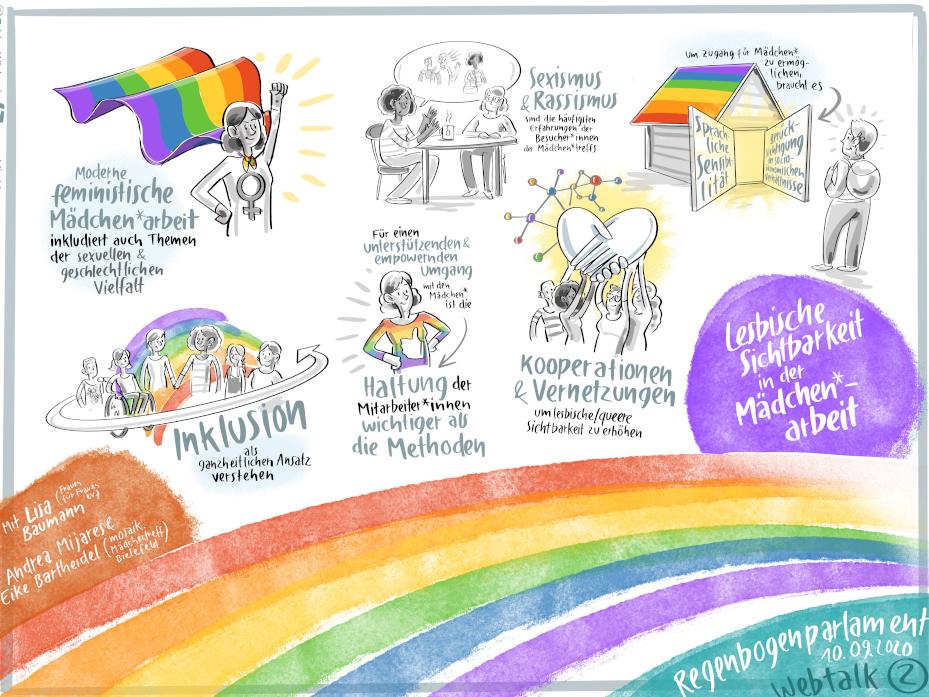 Moderne
feministische
Mädchen*arbeit
inkludiert auch Themen
der sexuellen &
geschlechtlichen
Vielfalt
Sexismus
& Rassismus
sind die häufigsten
Erfahrungen der
Besucher*innen
der Mädchen*treffs
um Zugang für Mädchen*
zu ermög-
lichen,
braucht es
Sprach-
liche
Sensibi-
lität
Berück-
sichtigung
von sozio-
ökonomischen
Verhältnisse
Für einen
unterstützenden &
empowernden
Umgang
mit den
Mädchen*
ist die
Haltung der
Mitarbeiter*innen
wichtiger als
die Methoden
Kooperationen
& Vernetzungen
um lesbische/queere
Sichtbarkeit zu erhöhen
Inklusion
als
ganzheitlichen Ansatz
verstehen
Lesbische
Sichtbarkeit
in der
Mädchen*-
arbeit
Mit Lisa (Frauen
für Frauen
eV)
Baumann
Andrea Mijares &
Eike Bartheidel (mosaik,
Mädchentreff
Bielefeld)
Regenbogenparlament
10.09.2020
Webtalk 2